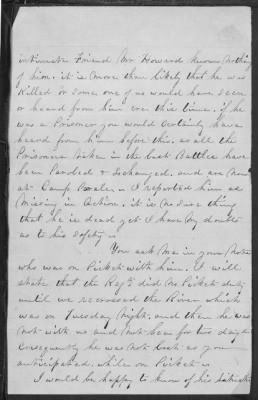 intimate Friend Mr Howard knows nothing
of him, it is more than likely that he was
Killed or some one of us would have seen
or heard from him ere this time. if he
was a Prisoner you would certainly have
heard from him before this, as all the
Prisoners taken in the last Battles have
been Paroled & Exchanged, and are now
at Camp I reported him as
Missing in Action, it is no sure thing
that he is dead yet I have my doubts
as to his safety
You ask me in your note
who was on Picket with him. I will
state that the Regt did no Picket duty
until we recrossed the River which
was on Tuesday Night, and then he was
not with us and not been for two days
Consequently he was not lost as you
anticipated, while on Picket
I would be happy to know of his